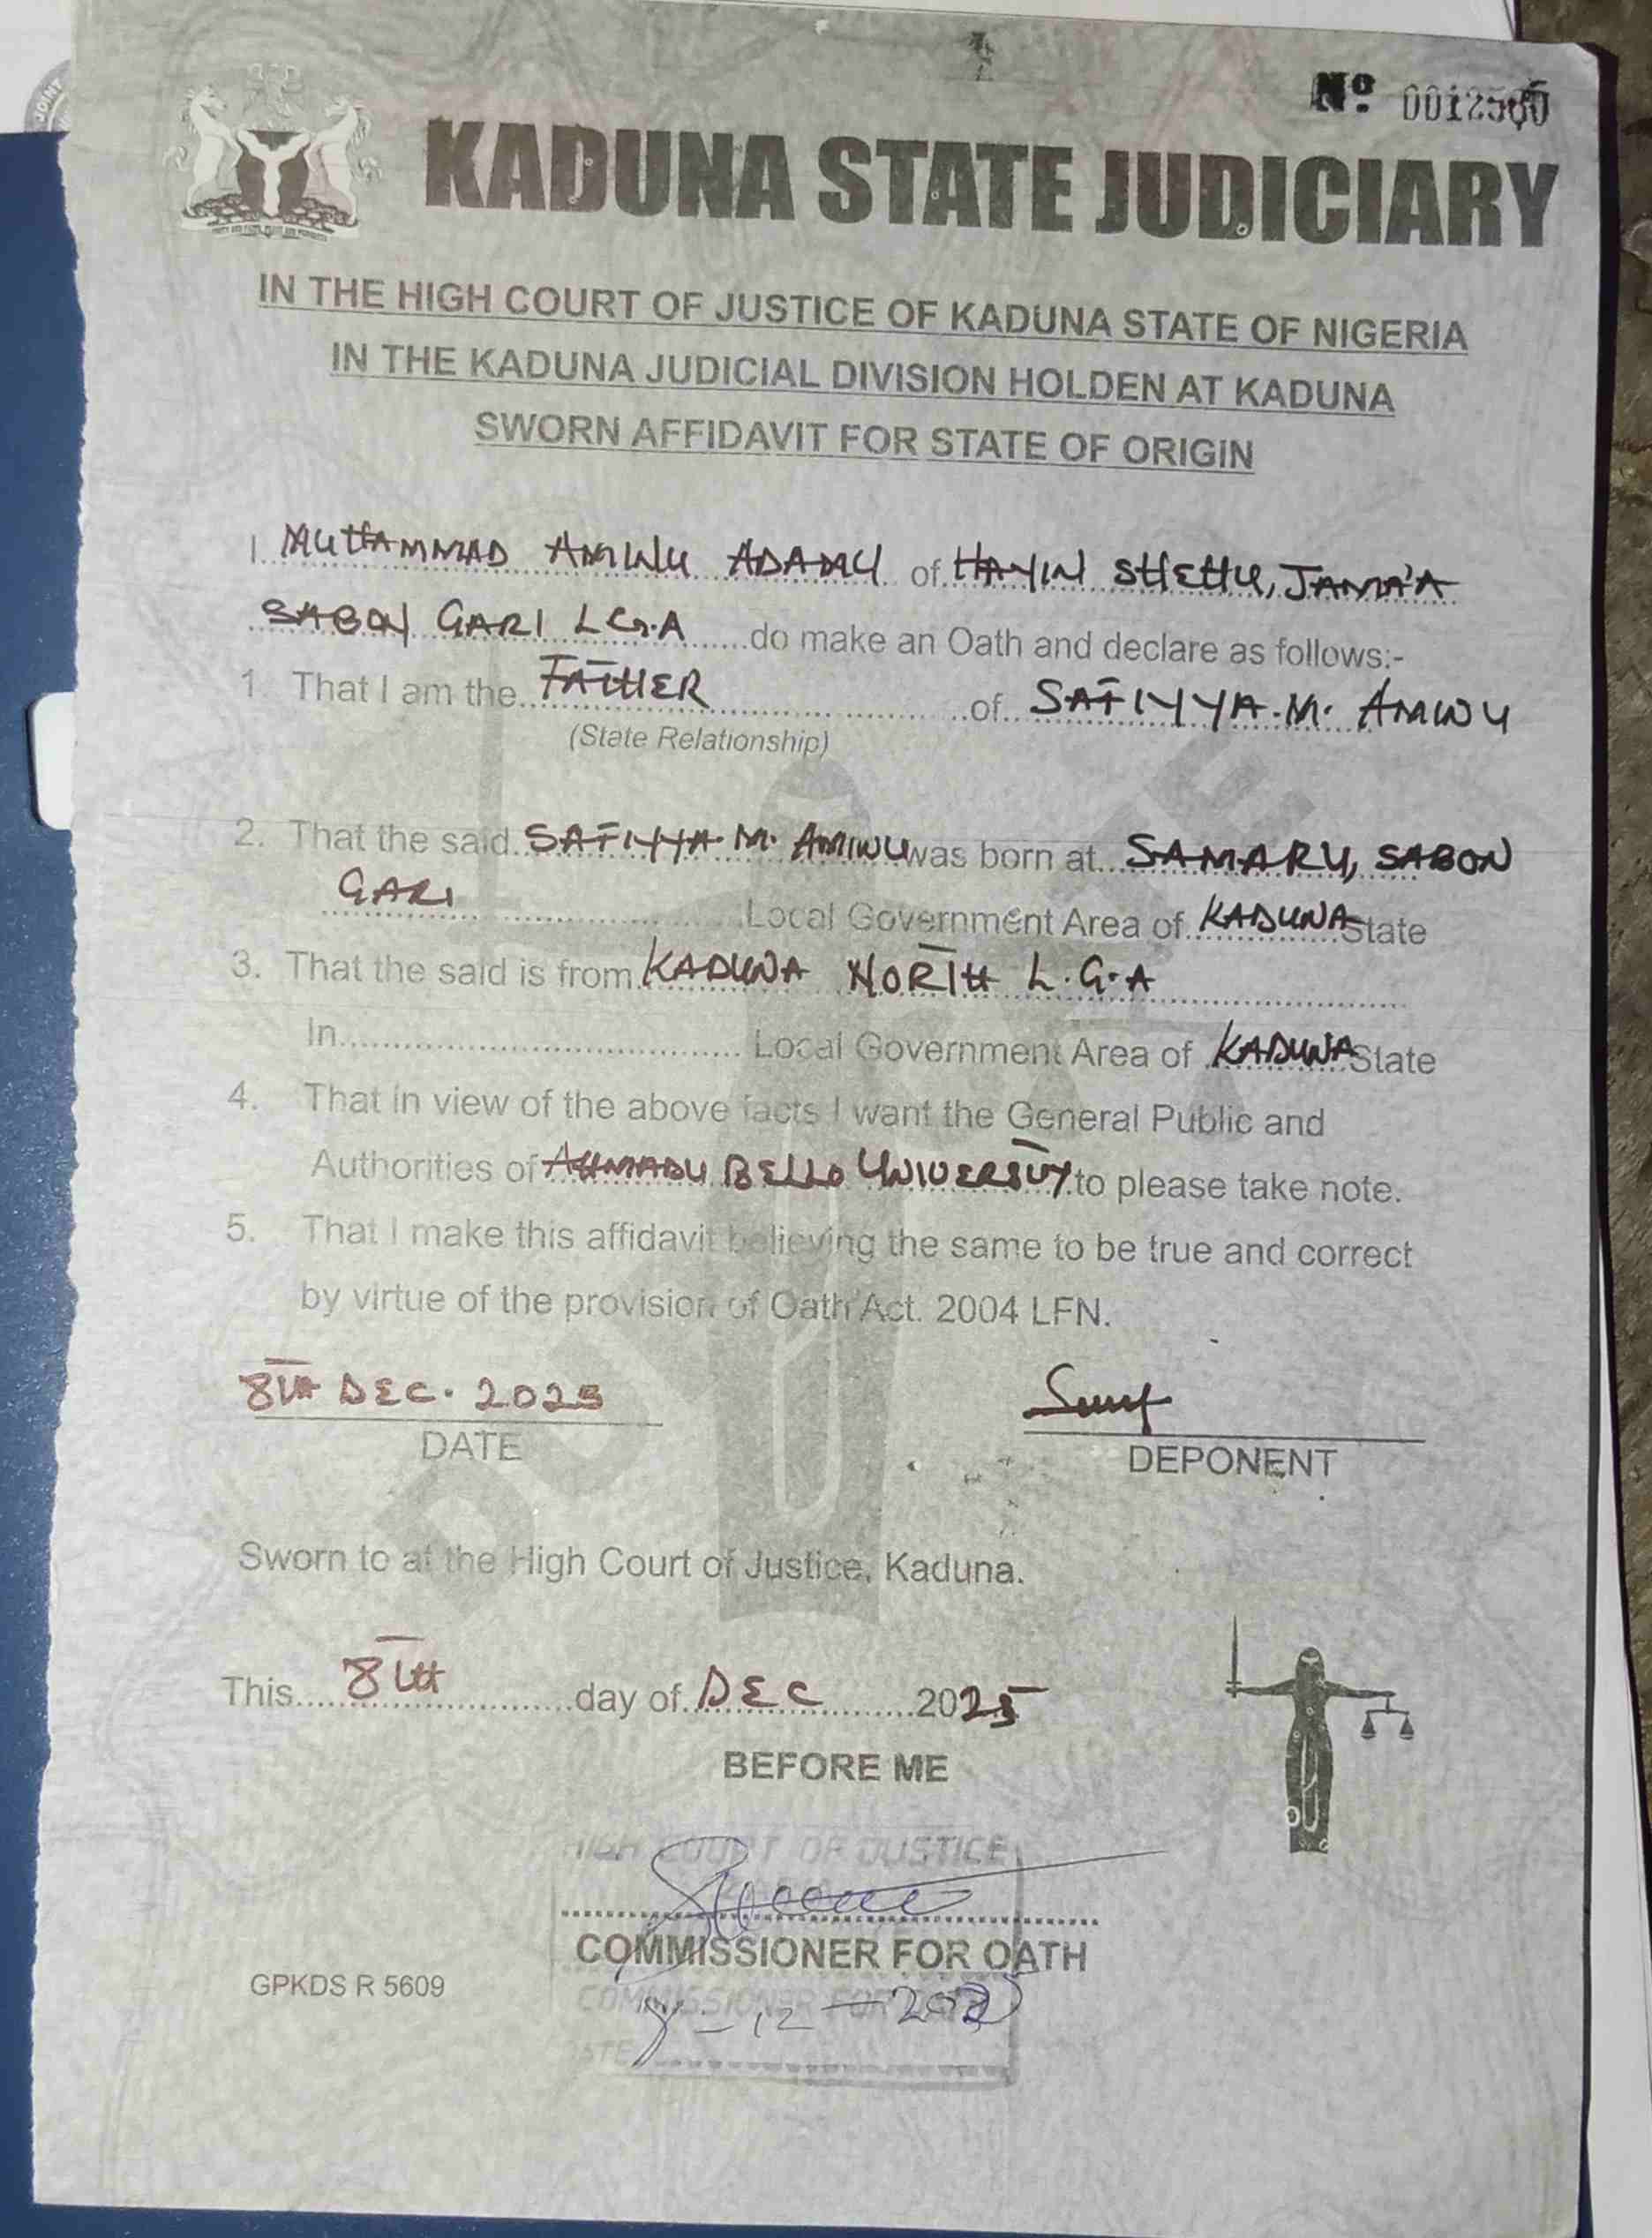 JOINT
Nº 00125
KADUNA STATE JUDICIARY
IN THE HIGH COURT OF JUSTICE OF KADUNA STATE OF NIGERIA
IN THE KADUNA JUDICIAL DIVISION HOLDEN AT KADUNA
SWORN AFFIDAVIT FOR STATE OF ORIGIN
I MUHAMMAD AMINU ADAMU of HAYIN SHEHU, JAMA'A
SABON GARI L.G.A do make an Oath and declare as follows:-
1. That I am the FATHER of SAFIYYA.M. AMINU
(State Relationship)
2. That the said SAFIYYA.M. AMINU was born at SAMARU, SABON
GARI Local Government Area of KADUNA State
3. That the said is from KADUNA NORTH L.G.A
In Local Government Area of KADUNA State
4. That in view of the above facts I want the General Public and
Authorities of AHMADU BELLO UNIVERSITY to please take note.
5. That I make this affidavit believing the same to be true and correct
by virtue of the provision of Oath Act. 2004 LFN.
8TH DEC. 2025
DATE
DEPONENT
Sworn to at the High Court of Justice, Kaduna.
This 8TH day of DEC 2025
BEFORE ME
HIGH COURT OF JUSTICE
COMMISSIONER FOR OATH
GPKDS R 5609
COMMISSIONER FOR
8-12-2025